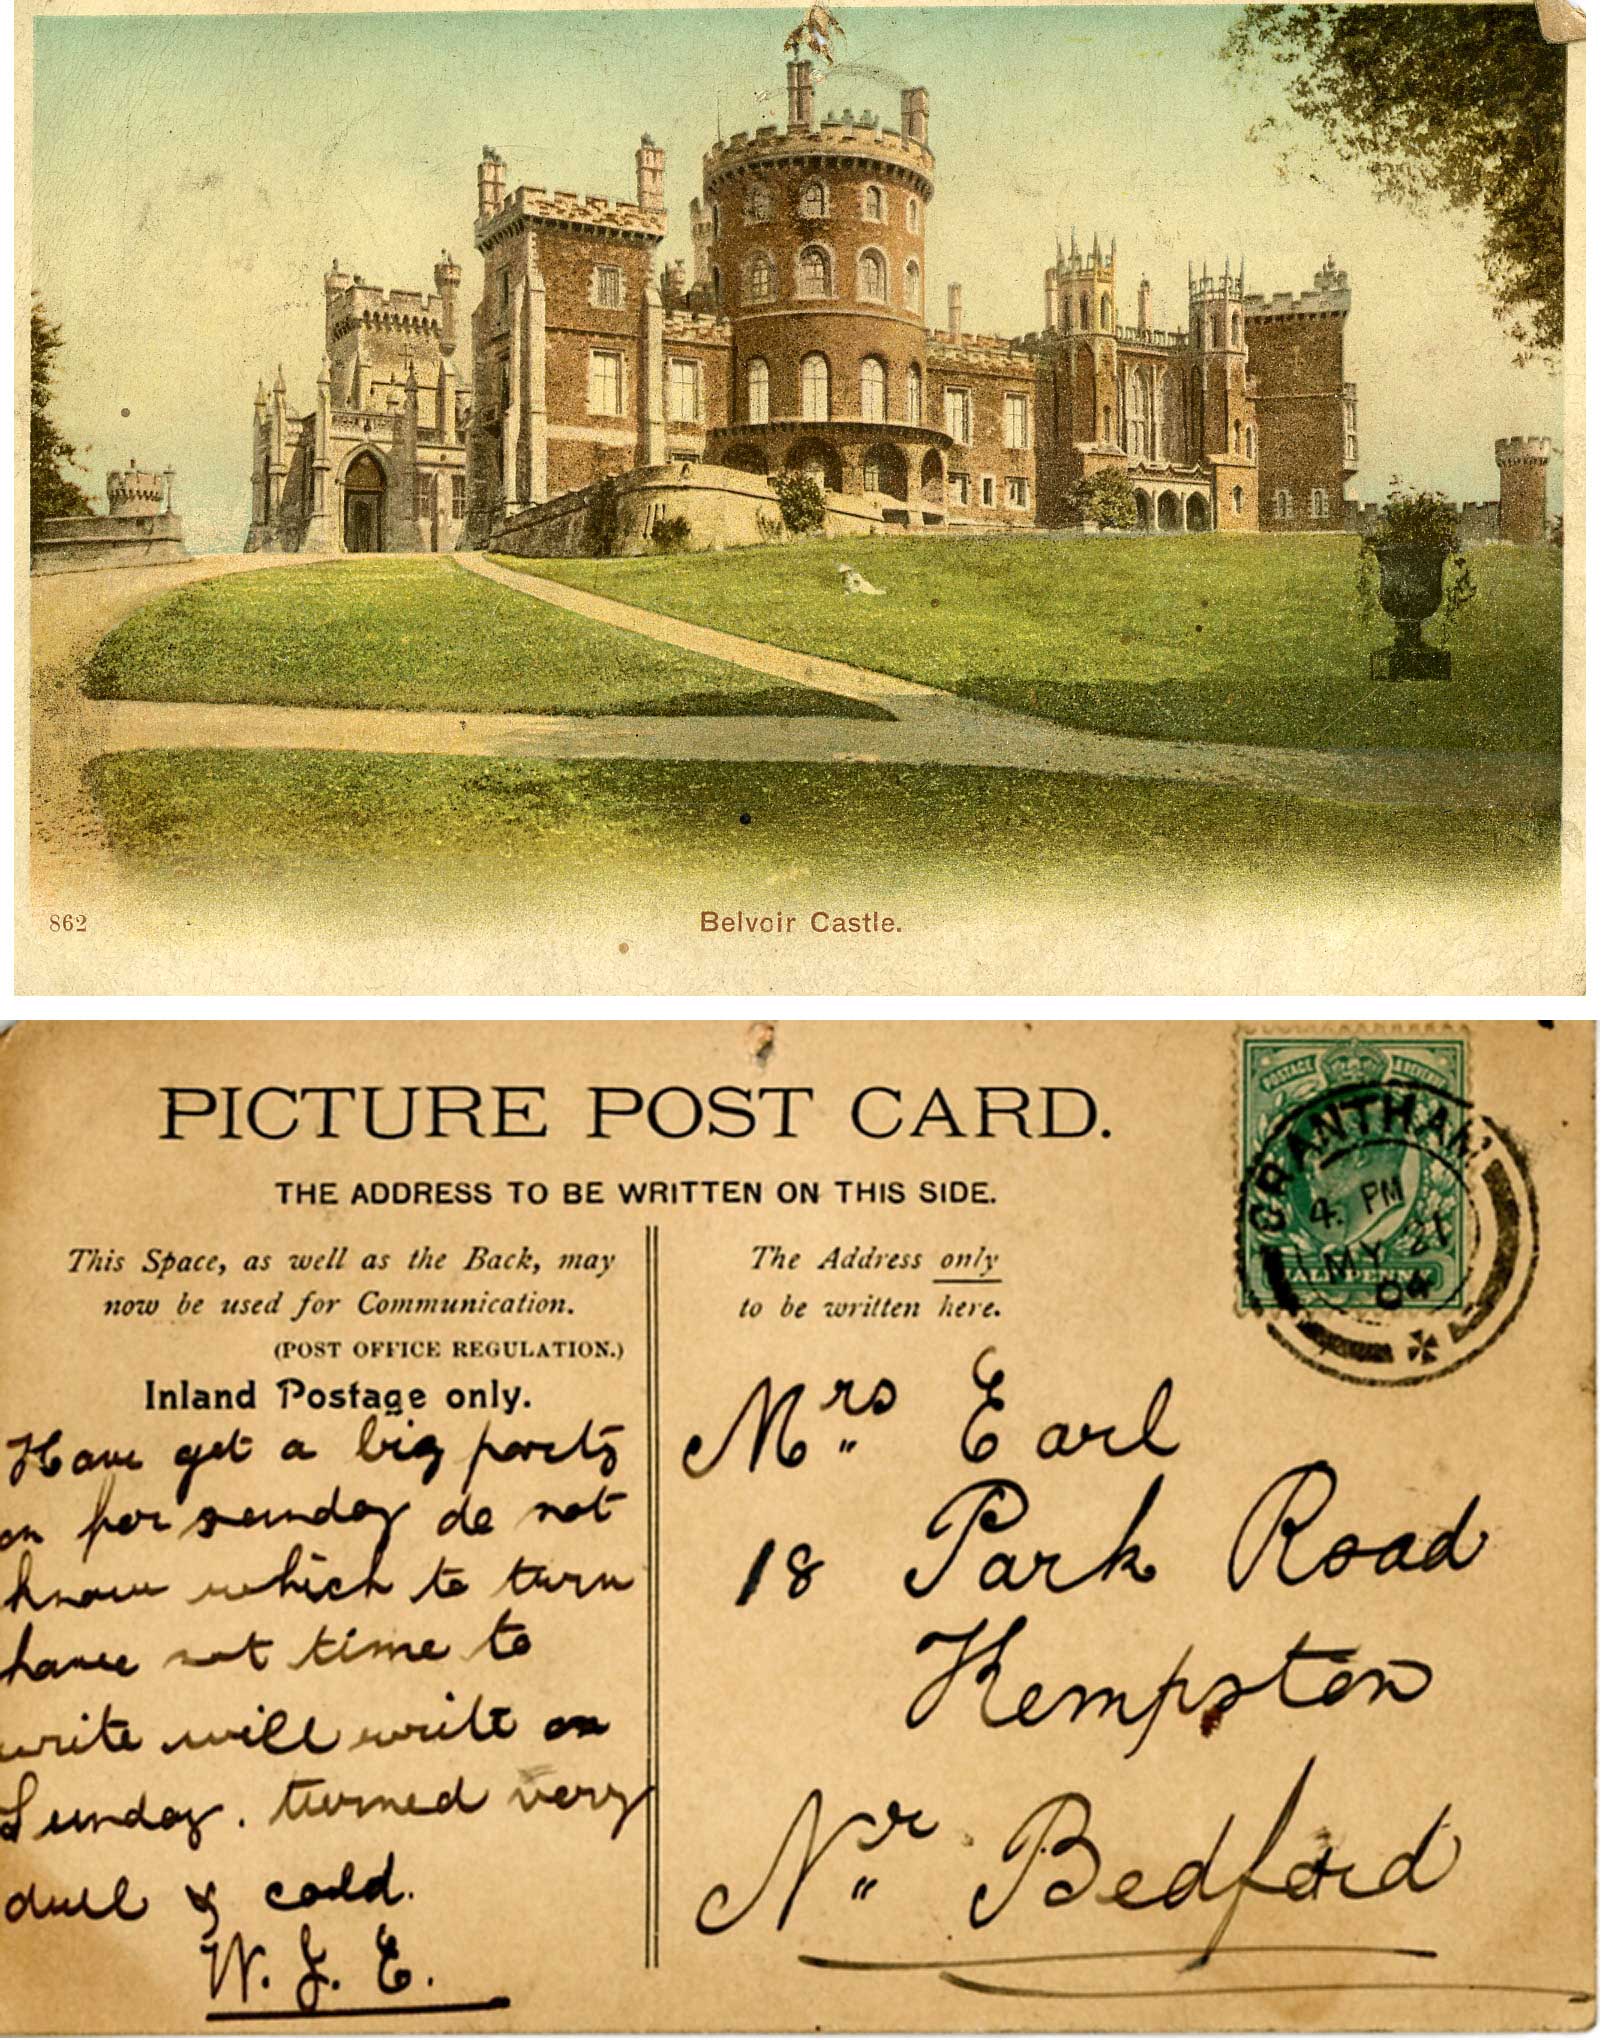 862
Belvoir Castle.
PICTURE POST CARD.
THE ADDRESS TO BE WRITTEN ON THIS SIDE.
This Space, as well as the Back, may
now be used for Communication.
(POST OFFICE REGULATION.)
Inland Postage only.
Have got a big party
on for sunday do not
know which to turn
have not time to
write will write on
Sunday. turned very
dull & cold.
W. J. E.
The Address only
to be written here.
POSTAGE REVENUE
HALFPENNY
GRANTHAM
4. PM
MY 21
04
Mrs Earl
18 Park Road
Kempston
Nr Bedford